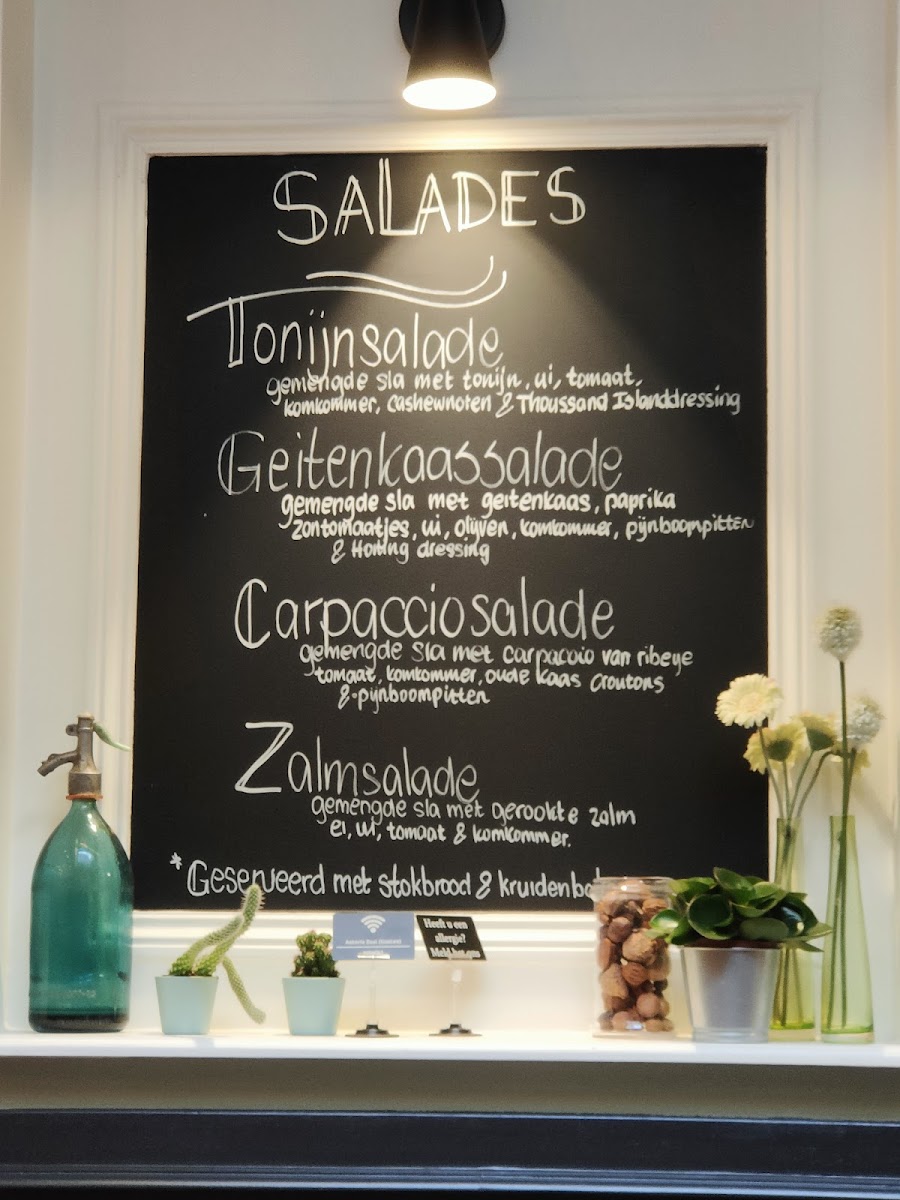 SALADES
Tonijnsalade
gemengde sla met tonijn, ui, tomaat,
komkommer, cashewnoten & Thoussand Islanddressing
Geitenkaassalade
gemengde sla met geitenkaas, paprika
zontomaatjes, ui, olijven, komkommer, pijnboompitten
& Honing dressing
Carpacciosalade
gemengde sla met carpaccio van ribeye
tomaat, komkommer, oude kaas croutons
& pijnboompitten
Zalmsalade
gemengde sla met gerookte zalm
ei, ui, tomaat & komkommer.
*Geserveerd met stokbrood &
Heeft u een
allergie?